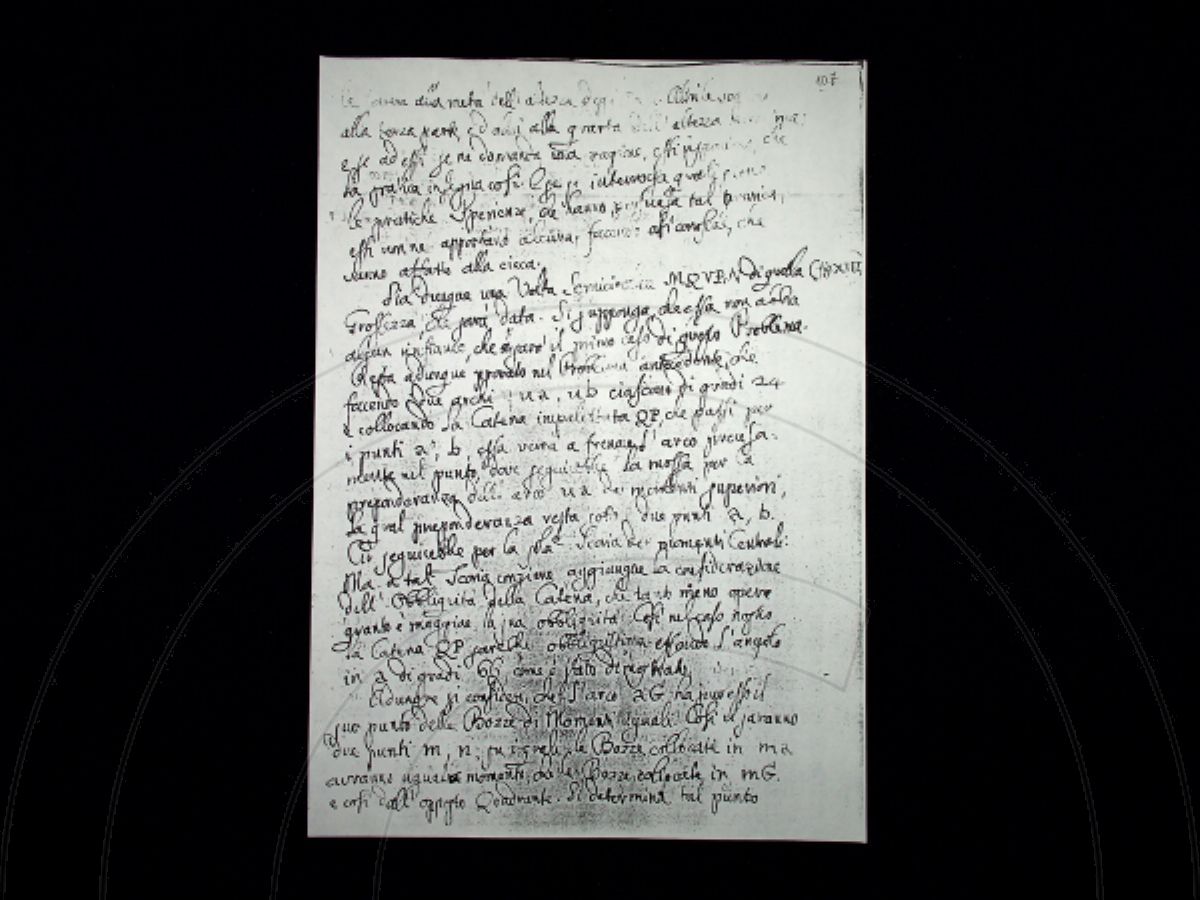 107
alla metà dell'altezza
alla terza parte ed altri alla quarta dell'altezza
e se ad essi se ne domanda una ragione, essi rispondono, che
la pratica insegna così. E se si interroga quali sono
le pratiche Sperienze, che hanno tal
essi non ne apportano alcuna, facendo
vanno affatto alla cieca.
Sia dunque una Volta Semicircolare MQVPN di quella
Grossezza, che sarà data. Si supponga, che essa non abbia
alcun rinfianco, che sarà il primo caso di questo Problema.
Resta adunque provato nel Problema antecedente, che
facendo due archi ua, ub ciascuno di gradi 24
e collocando la Catena QP, che passi per
i punti a, b, essa verrà a frenare l'arco precisa-
mente nel punto, dove seguirebbe la mossa per la
preponderanza dell'arco ua dei momenti superiori,
la qual preponderanza resta così due punti a, b.
Ciò seguirebbe per la sola Teoria dei momenti Centrali:
Ma a tal Teoria conviene aggiungere la considerazione
dell'Obbliquità della Catena, che tanto meno opera
quanto è maggiore la sua obbliquità. Così nel caso nostro
la Catena QP sarebbe obbliquissima essendo l'angolo
in a di gradi 66, come è stato dimostrato,
Adunque si consideri, che l'arco aG ha pur esso il
suo punto delle Bozze di Momenti eguali. Così vi saranno
due punti m, n, su i quali le Bozze collocate in ma
avranno uguale momento, che le Bozze collocate in mG.
e così dall'opposto Quadrante. Si determina tal punto